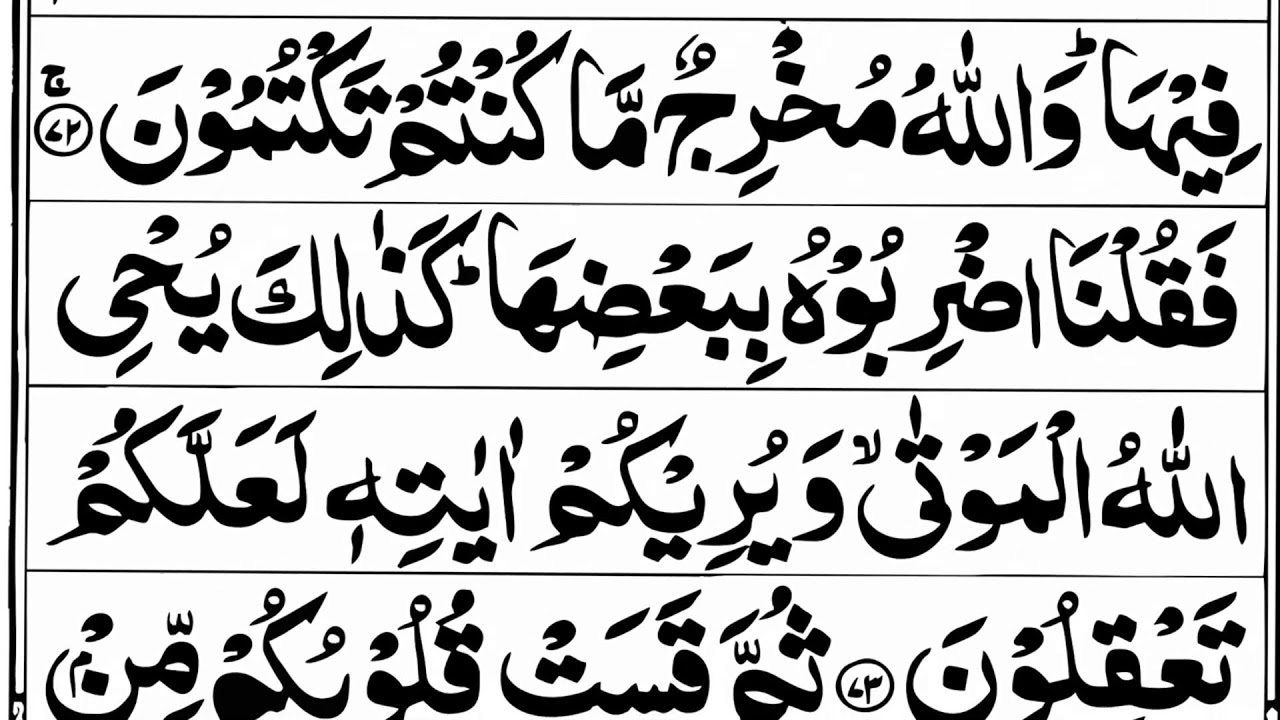 فِيْهَا ؕ وَاللّٰهُ مُخْرِجٌ مَّا كُنْتُمْ تَكْتُمُوْنَ ۚ ﴿۷۲﴾
فَقُلْنَا اضْرِبُوْهُ بِبَعْضِهَا ؕ كَذٰلِكَ يُحْيِ
اللّٰهُ الْمَوْتٰى ۙ وَيُرِيْكُمْ اٰيٰتِهٖ لَعَلَّكُمْ
تَعْقِلُوْنَ ﴿۷۳﴾ ثُمَّ قَسَتْ قُلُوْبُكُمْ مِّنْۢ